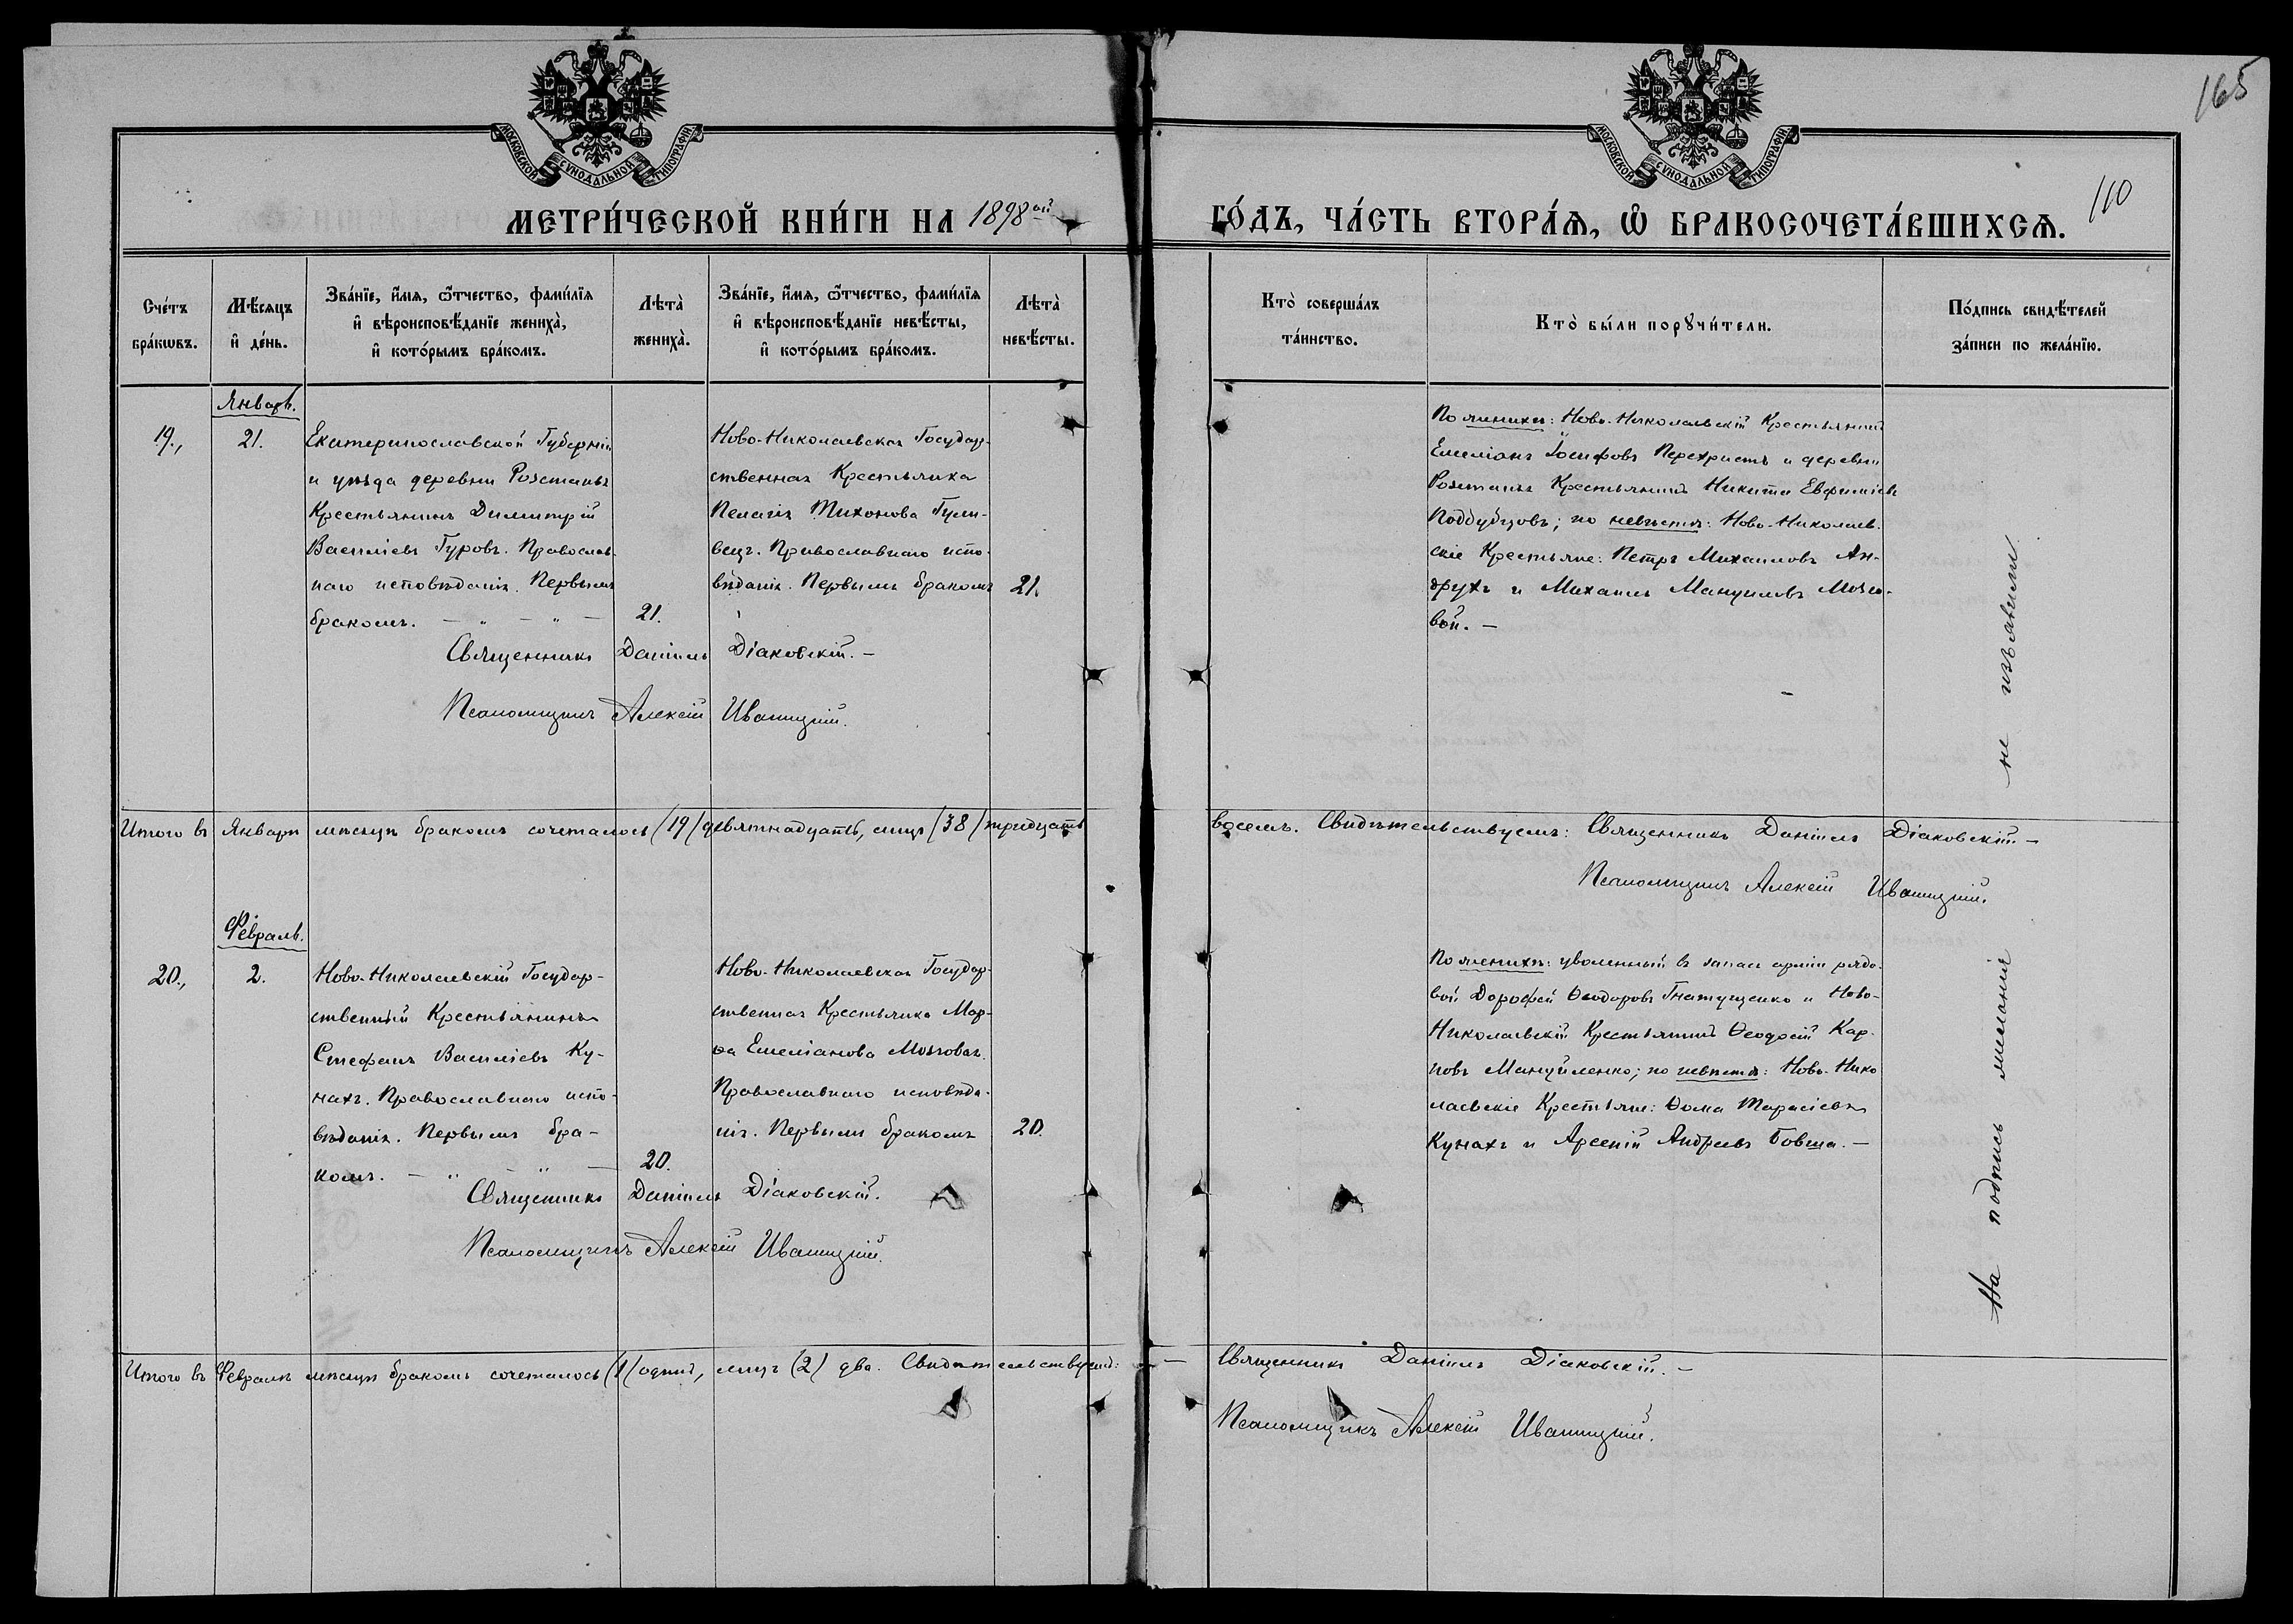 165
110
МОСКОВСКОЙ СѴНОДАЛЬНОЙ ТИПОГРАФІИ
МОСКОВСКОЙ СѴНОДАЛЬНОЙ ТИПОГРАФІИ
МЕТРИ́ЧЕСКОЙ КНИ́ГИ НА 1898ой
ГО́ДЪ, ЧА́СТЬ ВТОРА́Ѧ, Ѡ҆ БРАКОСОЧЕТА́ВШИХСѦ.
Сче́тъ бра́кѡвъ.
Мѣ́сяцъ и҆ де́нь.
Зва́нїе, и҆́мѧ, ѻ҆́тчество, фами́лїѧ
и҆ вѣроисповѣ́данїе жениха̀,
и҆ кото́рымъ бра́комъ.
Лѣта̀ жениха̀.
Зва́нїе, и҆́мѧ, ѻ҆́тчество, фами́лїѧ
и҆ вѣроисповѣ́данїе невѣ́сты,
и҆ кото́рымъ бра́комъ.
Лѣта̀ невѣ́сты.
Кто̀ соверша́лъ та́инство.
Кто̀ бы́ли порꙋчи́тели.
По́дпись свидѣ́телей за́писи по жела́нїю.
Январь.
19.,
21.
Екатеринославской Губерніи
и уѣзда деревни Розстанъ
Крестьянинъ Димитрій
Василіевъ Гуровъ. Православ-
наго исповѣданія. Первымъ
бракомъ. — „ — „ —
21.
Ново-Николаевская Государ-
ственная Крестьянка
Пелагія Тихонова Гули-
вецъ. Православнаго испо-
вѣданія. Первымъ бракомъ
21.
По женихѣ: Ново-Николаевскій Крестьянинъ
Емеліанъ Іосифовъ Перехристъ и деревни
Розстанъ Крестьянинъ Никита Евфиміевъ
Поддубцовъ; по невѣстѣ: Ново-Николаев-
скіе Крестьяне: Петръ Михаиловъ Ан-
друхъ и Михаилъ Мануиловъ Мозго-
вой. —
Священникъ Даніилъ Діаковскій. —
Псаломщикъ Алексій Иваницкій.
Итого въ Январѣ мѣсяцѣ бракомъ сочеталось (19) девятнадцать, лицъ (38) тридцать
восемь. Свидѣтельствуемъ: Священникъ Даніилъ Діаковскій —
Псаломщикъ Алексій Иваницкій.
Февраль.
20.,
2.
Ново-Николаевскій Государ-
ственный Крестьянинъ
Стефанъ Василіевъ Ку-
нахъ. Православнаго испо-
вѣданія. Первымъ бра-
комъ. — „ — „ —
20.
Ново-Николаевская Государ-
ственная Крестьянка Мар-
ѳа Емеліанова Мозговая.
Православнаго исповѣда-
нія. Первымъ бракомъ
20.
По женихѣ: уволенный въ запасъ арміи рядо-
вой Дорофей Ѳеодоровъ Гнатущенко и Ново-
Николаевскій Крестьянинъ Ѳеодосій Кар-
повъ Мануйленко; по невѣстѣ: Ново-Нико
лаевскіе Крестьяне: Ѳома Тарасіевъ
Кунахъ и Арсеній Андреевъ Бовша. —
Священникъ Даніилъ Діаковскій.
Псаломщикъ Алексій Иваницкій.
На подпись желанія не изъявили
Итого въ Февралѣ мѣсяцѣ бракомъ сочеталось (1) одинъ, лицъ (2) два. Свидѣтельствуемъ: —
Священникъ Даніилъ Діаковскій. —
Псаломщикъ Алексій Иваницкій.